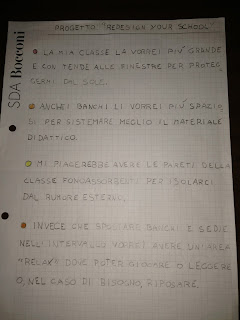 PROGETTO "REDESIGN YOUR SCHOOL"
SDA Bocconi
LA MIA CLASSE LA VORREI PIÚ GRANDE
E CON TENDE ALLE FINESTRE PER PROTEG_
GERMI DAL SOLE.
ANCHE I BANCHI LI VORREI PIÚ SPAZIO_
SI PER SISTEMARE MEGLIO IL MATERIALE
DIDATTICO.
MI PIACEREBBE AVERE LE PARETI DELLA
CLASSE FONOASSORBENTI PER ISOLARCI
DAL RUMORE ESTERNO.
INVECE CHE SPOSTARE BANCHI E SEDIE
NELL'INTERVALLO VORREI AVERE UN'AREA
"RELAX" DOVE POTER GIOCARE O LEGGERE
O, NEL CASO DI BISOGNO, RIPOSARE.